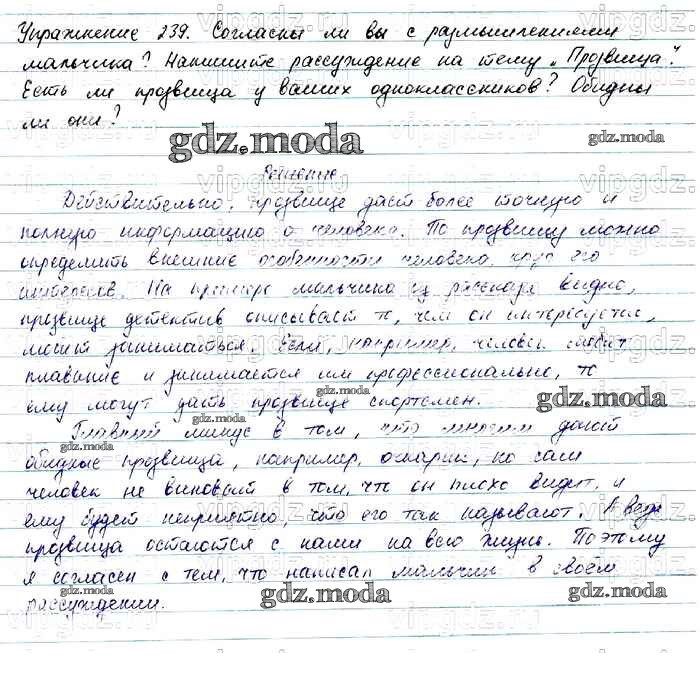 Упражнение 239. Согласны ли вы с размышлениями
мальчика? Напишите рассуждение на тему „Прозвища".
Есть ли прозвища у ваших одноклассников? Обидны
ли они?
gdz.moda
Решение
Действительно, прозвище даст более точную и
полную информацию о человеке. По прозвищу можно
определить внешние особенности человека, круг его
интересов. На примере мальчика из рассказа видно,
прозвище детектив описывает то, чем он интересуется,
может заниматься. Если, например, человек любит
плавание и занимается им профессионально, то
ему могут дать прозвище спортсмен.
gdz.moda
Главный минус в том, что многим дают
обидные прозвища, например, очкарик, но сам
человек не виноват в том, что он плохо видит, и
ему будет неприятно, что его так называют. А ведь
прозвища остаются с нами на всю жизнь. Поэтому
я согласен с тем, что написал мальчик в своём
рассуждении.
gdz.moda